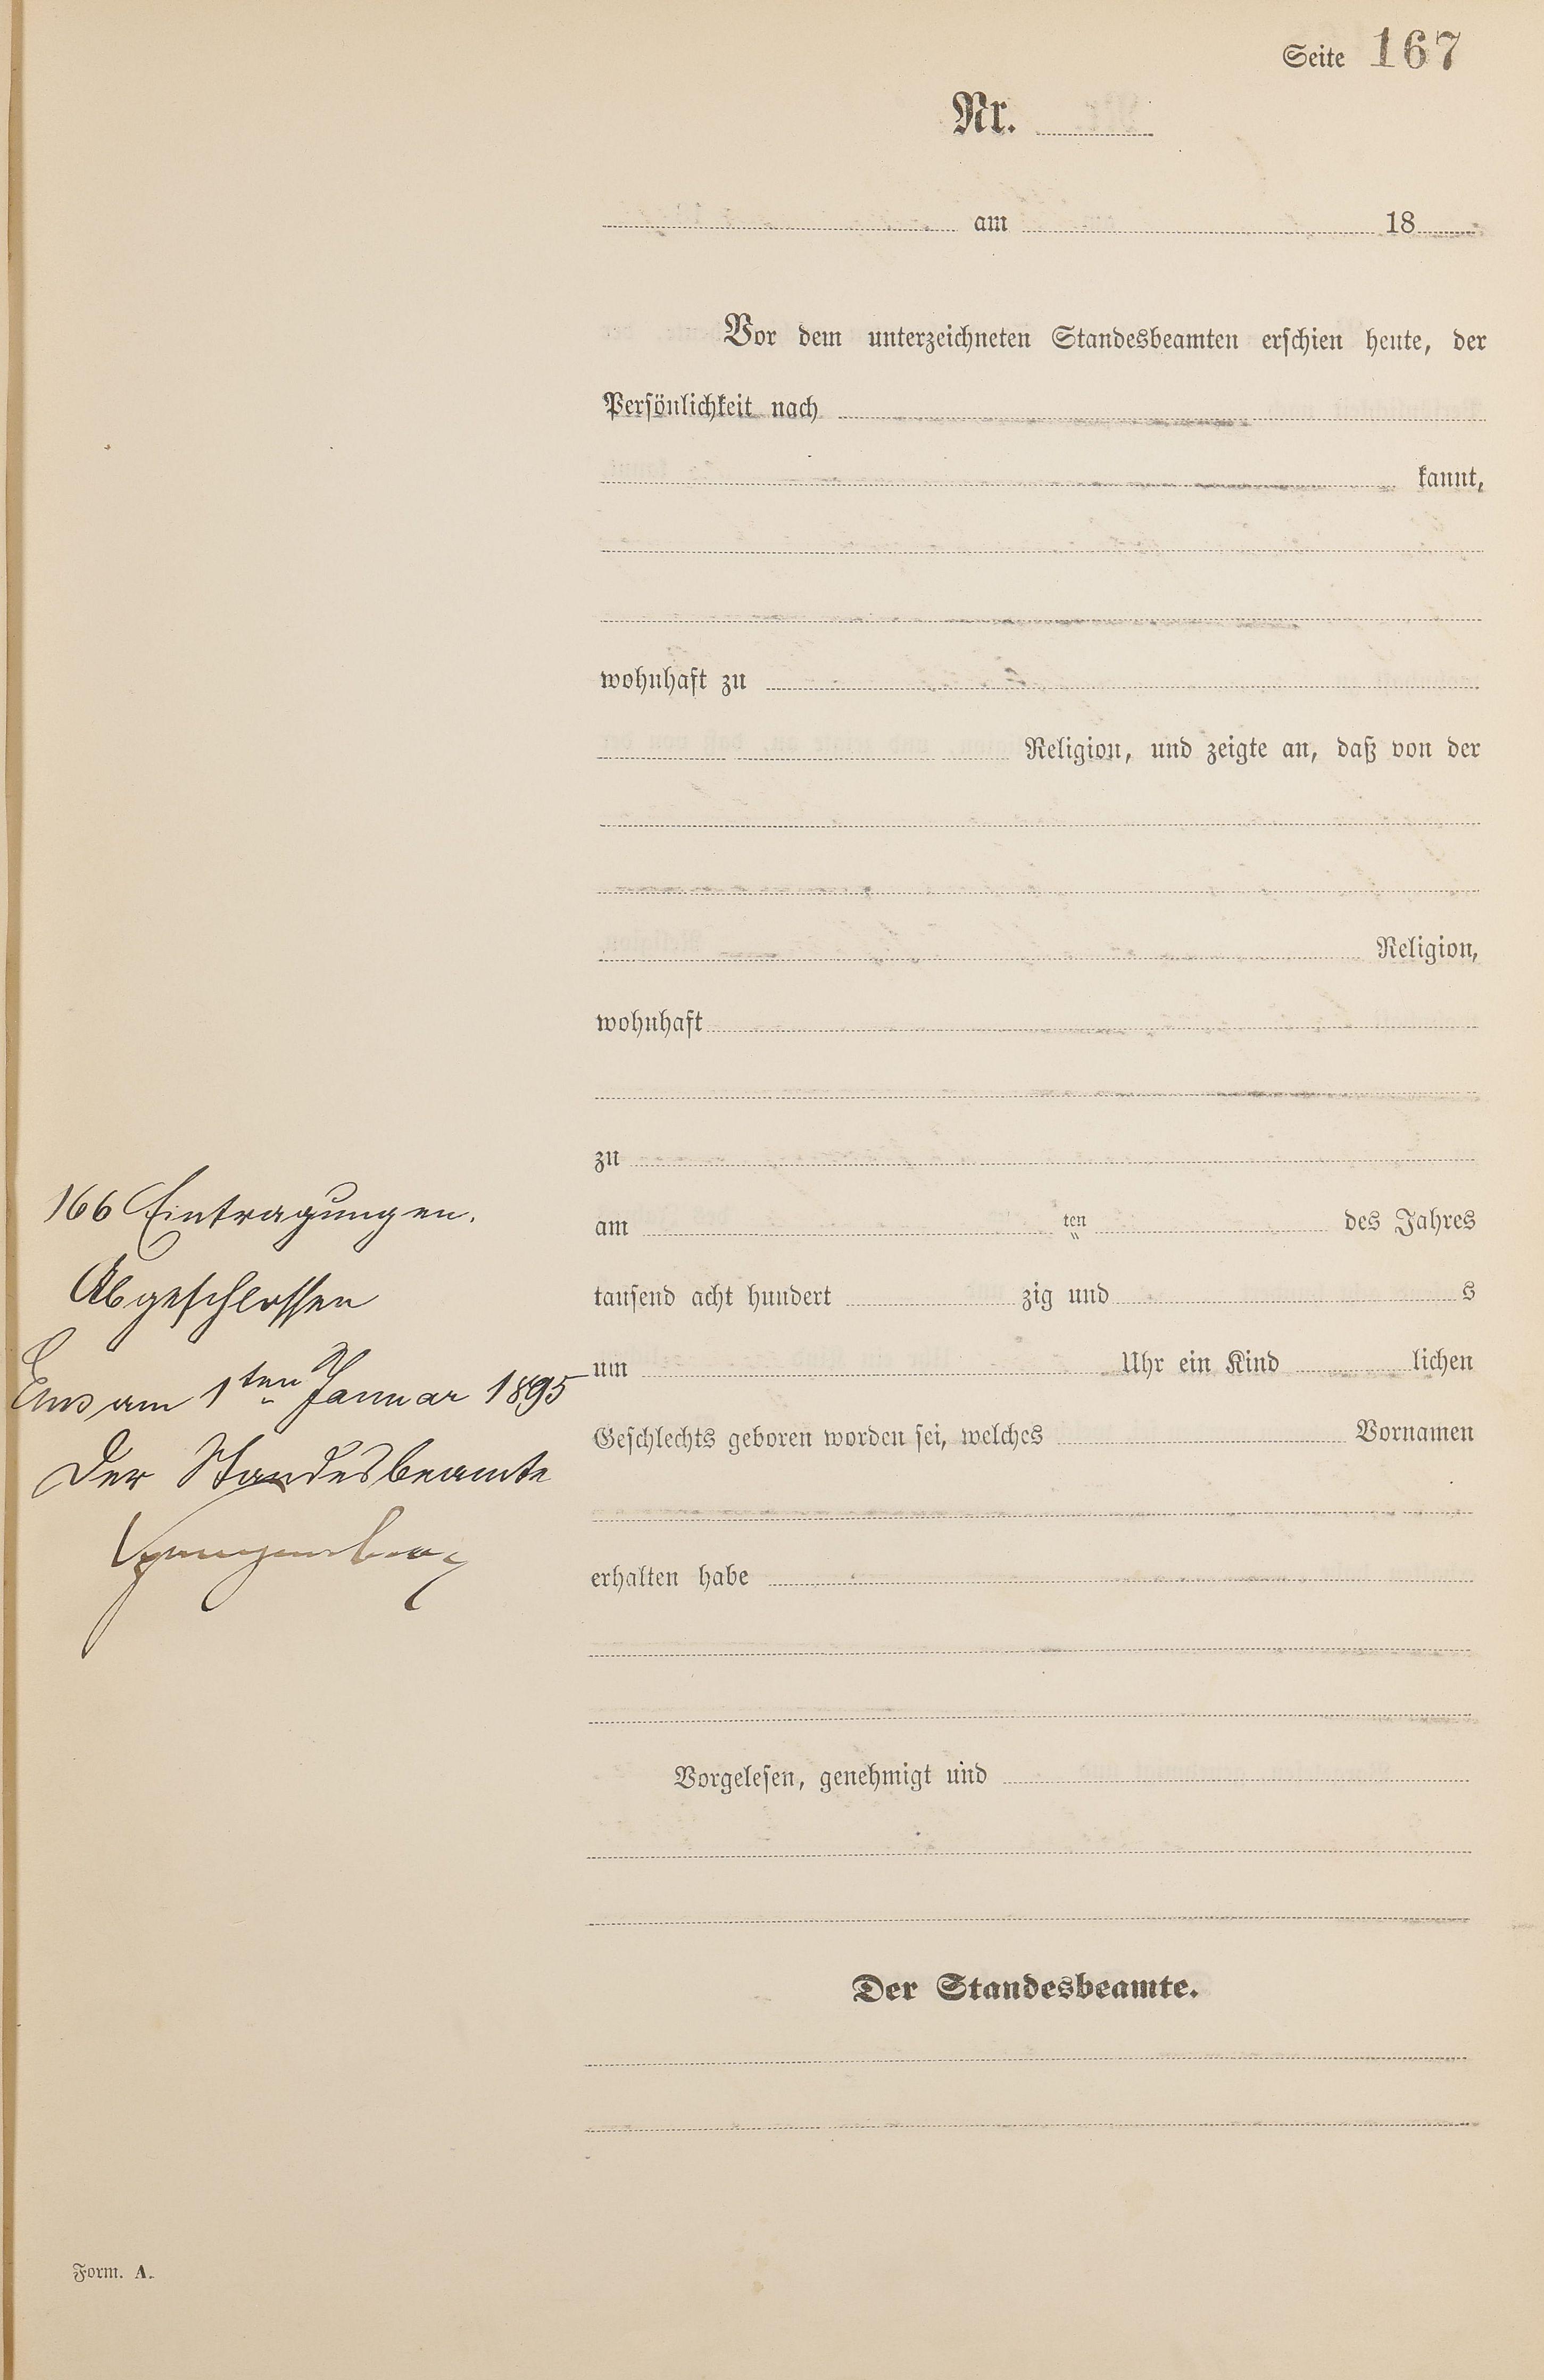 Seite 167
Nr.
am 18
Vor dem unterzeichneten Standesbeamten erschien heute, der
Persönlichkeit nach
kannt,
wohnhaft zu
Religion, und zeigte an, daß von der
Religion,
wohnhaft
zu
am ten des Jahres
tausend acht hundert zig und s
um Uhr ein Kind lichen
Geschlechts geboren worden sei, welches Vornamen
erhalten habe
Vorgelesen, genehmigt und
Der Standesbeamte.
166 Eintragungen.
Abgeschlossen
Ems am 1ten Januar 1895
Der Standesbeamte
Form. A.